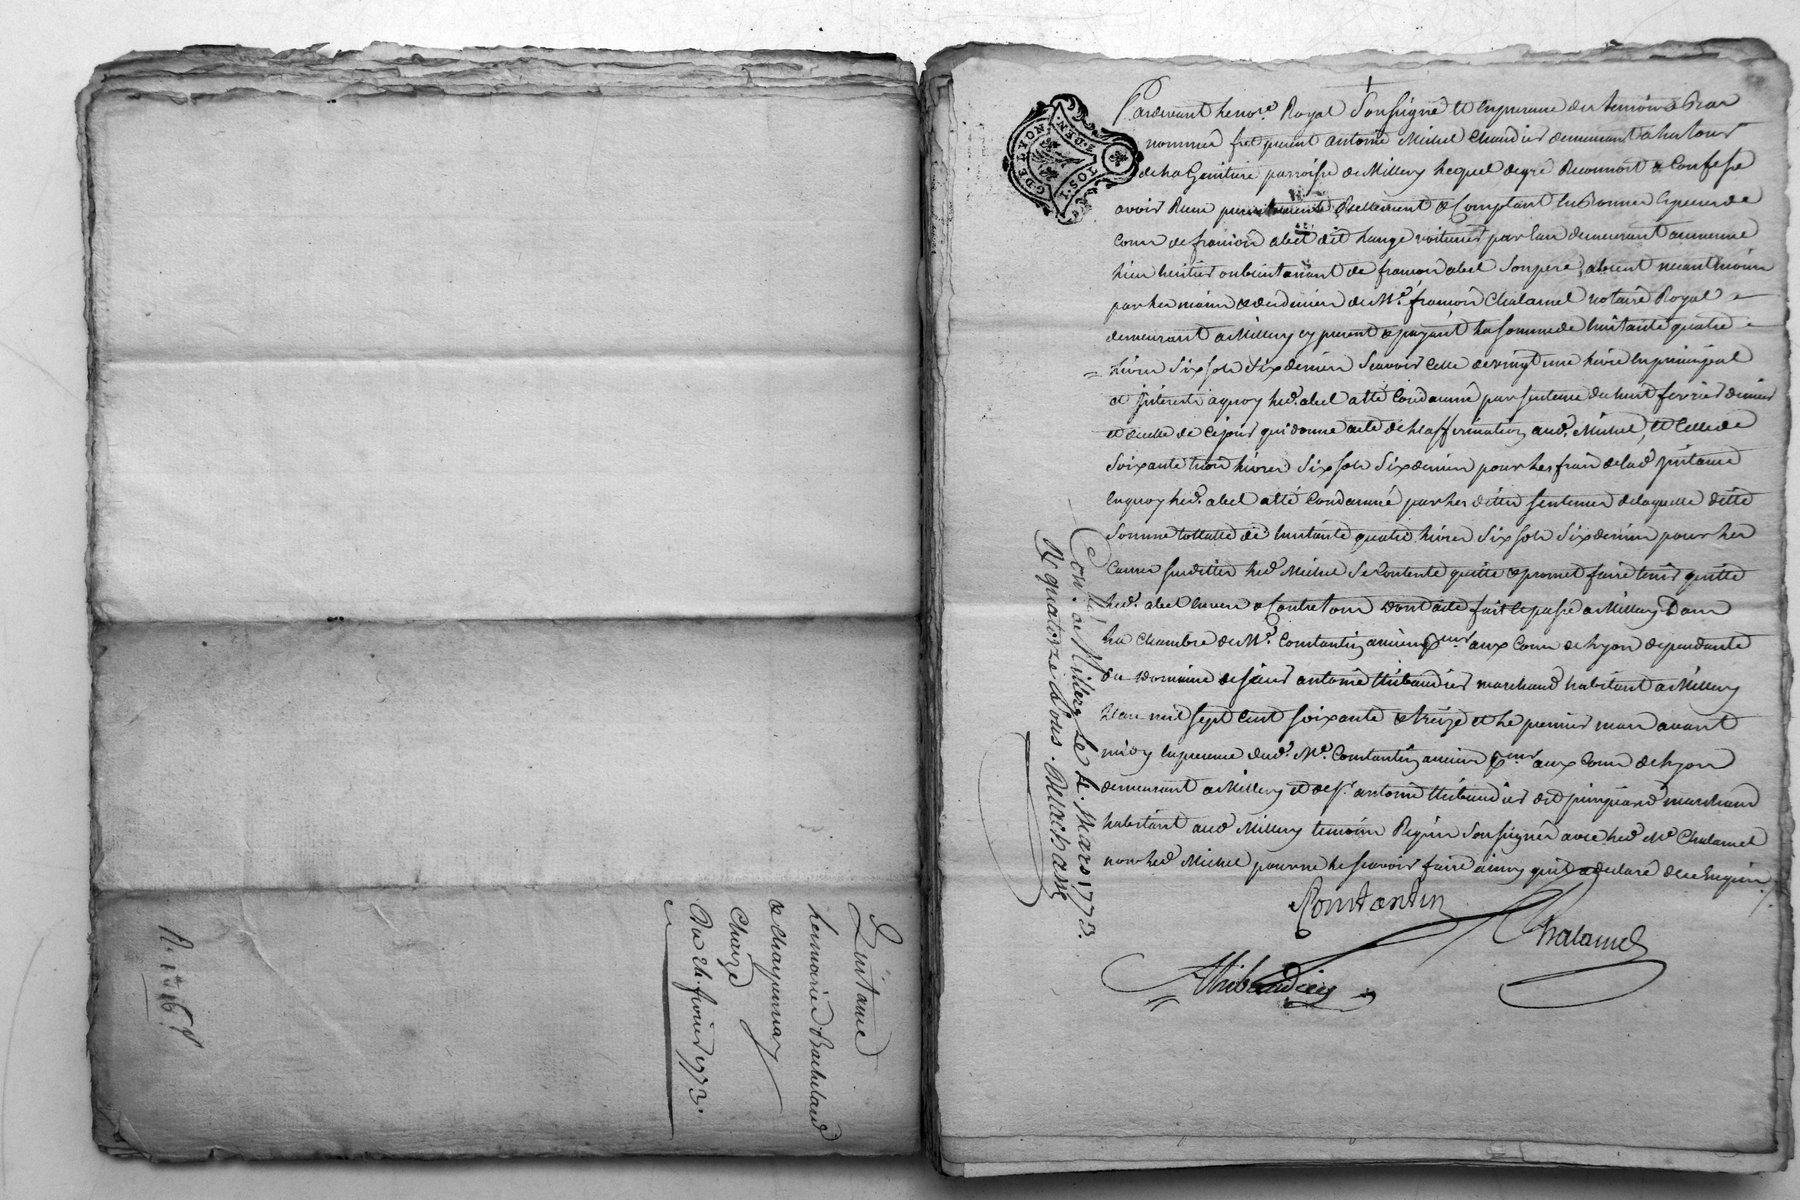 Quittance
les mariés Bachelard
& chayennay
Chaize
Du 24. fevrier 1773.
G. DE LYON
2. DEN.
Pardevant le no.re Royal Soussigné et en presence des temoins Bas
nommés fut present antoine Michel Chaudier demeurant a la tour
de la Gaintiere parroisse de Millery lequel de gré Reconnoit & Confesse
avoir Reçu presentement Reellement & Comptant En Bonnes Especes de
Cours de françois abel dit Lange voiturier par Eau demeurant au meme
lieu heritier ou bientenant de françois abel son pere, absent neantmoins
par les mains & des deniers de M.e françois Chalamel notaire Royal
demeurant a Millery cy present & payant la somme de huitante quatre
livres six sols six deniers Scavoir Celle de vingt une livre En principal
et interets a quoy led. abel a été Condamné par sentence du huit fevrier dernier
et d'icelle de ce jour qui donne acte de l'affirmation aud. Michel, et Celle de
soixante trois livres six sols six deniers pour les frais de lad. instance
En quoy led. abel a été Condamné par les dittes sentences de laquelle ditte
somme tottale de huitante quatre livres six sols six deniers pour les
causes susdittes led. Michel se Contente quitte & promet faire tenir quitte
led. abel Envers & Contre tous dont acte fait & passé a Millery Dans
la chambre de M.e Constantin ancien p.eur aux Cours de Lyon dependante
du Domaine de sieur antoine thibaudier marchand habitant a Millery
L'an mil sept cent soixante & treize et le premier mars avant
midy En presence dud. M.e Constantin ancien p.eur aux Cours de Lyon
demeurant a Millery et de s.r antoine thibaudier dit marchand
habitant aud. Millery temoins Requis soussignés avec led. M.e Chalamel
non led. Michel pour ne le scavoir faire ainsy qu'il a declaré de ce Enquis
Constantin
Chalamel
Thibaudier
Con.lé à Millery Le 4. Mars 1773.
R. quatorze sous. Delachasse